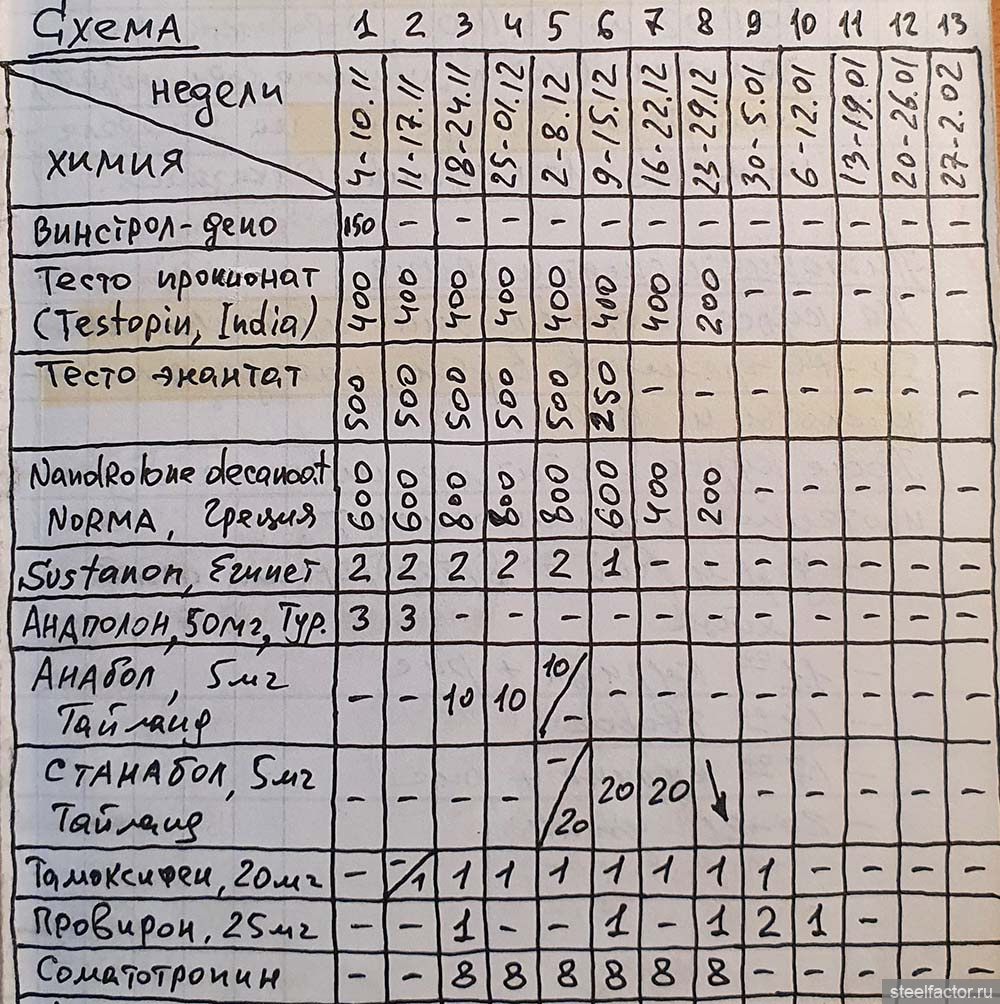 Схема 1 2 3 4 5 6 7 8 9 10 11 12 13
недели
химия
4-10.11 11-17.11 18-24.11 25-01.12 2-8.12 9-15.12 16-22.12 23-29.12 30-5.01 6-12.01 13-19.01 20-26.01 27-2.02
Винстрол-депо 150 - - - - - - - - - - - -
Тесто пропионат
(Testopin, India) 400 400 400 400 400 400 400 200 - - - - -
Тесто энантат 500 500 500 500 500 250 - - - - - - -
Nandrolone decanoat
NORMA, Греция 600 600 800 800 800 600 400 200 - - - - -
Sustanon, Египет 2 2 2 2 2 1 - - - - - - -
Андполон, 50мг, Тур. 3 3 - - - - - - - - - - -
Анабол, 5мг
Тайланд - - 10 10 10/- - - - - - - - -
Станабол, 5мг
Тайланд - - - - -/20 20 20 ↘ - - - - -
Тамоксифен, 20мг - -/1 1 1 1 1 1 1 1 - - - -
Провирон, 25мг - - 1 - - 1 - 1 2 1 -
Соматотропин - - 8 8 8 8 8 8 - - - - -
steelfactor.ru